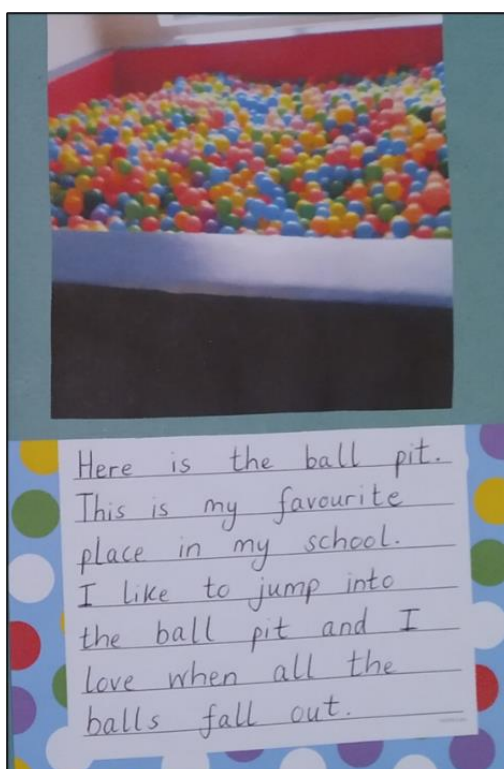 Here is the ball pit.
This is my favourite
place in my school.
I like to jump into
the ball pit and I
love when all the
balls fall out.